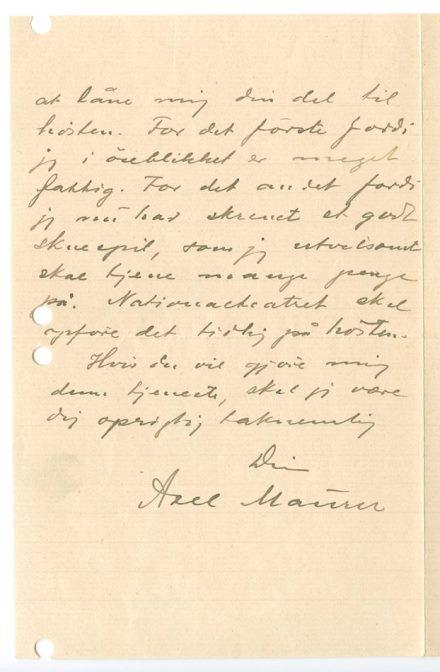 at låne mig din del til
hösten. For det förste fordi
jeg i öieblikket er meget
fattig. For det andet fordi
jeg nu har skrevet et godt
skuespil, som jeg utvilsomt
skal tjene mange penge
på. Nationaltheatret skal
opföre det tidlig på hösten.
Hvis du vil gjöre mig
denne tjeneste, skal jeg være
dig oprigtig taknemlig
Din
Axel Maurer